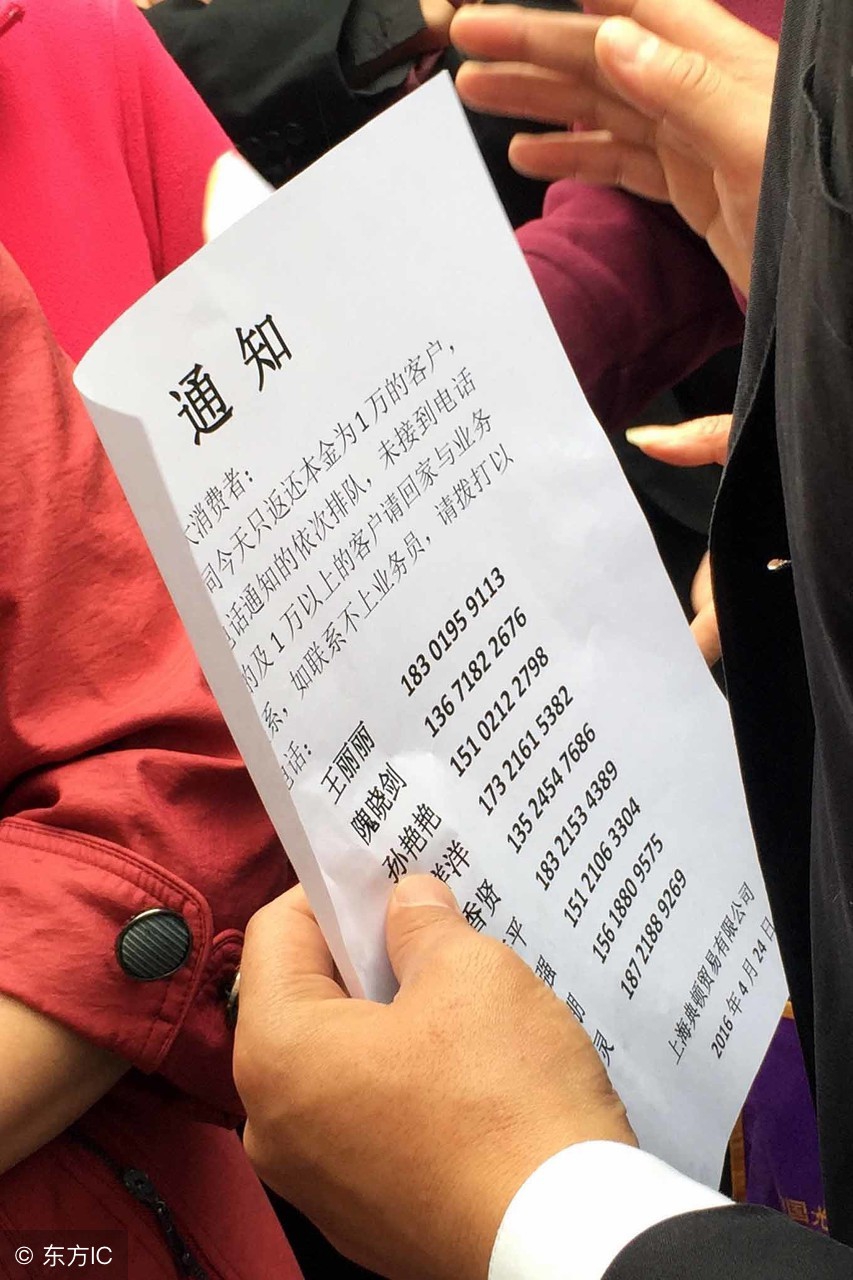 通知
消费者：
司今天只返还本金为1万的客户，
电话通知的依次排队，未接到电话
的及1万以上的客户请回家与业务
系，如联系不上业务员，请拨打以
电话：
王丽丽 183 0195 9113
隗晓剑 136 7182 2676
孙艳艳 151 0212 2798
洋 173 2161 5382
香贤 135 2454 7686
平 183 2153 4389
强 151 2106 3304
明 156 1880 9575
灵 187 2188 9269
上海典顿贸易有限公司
2016年4月24日
© 东方IC